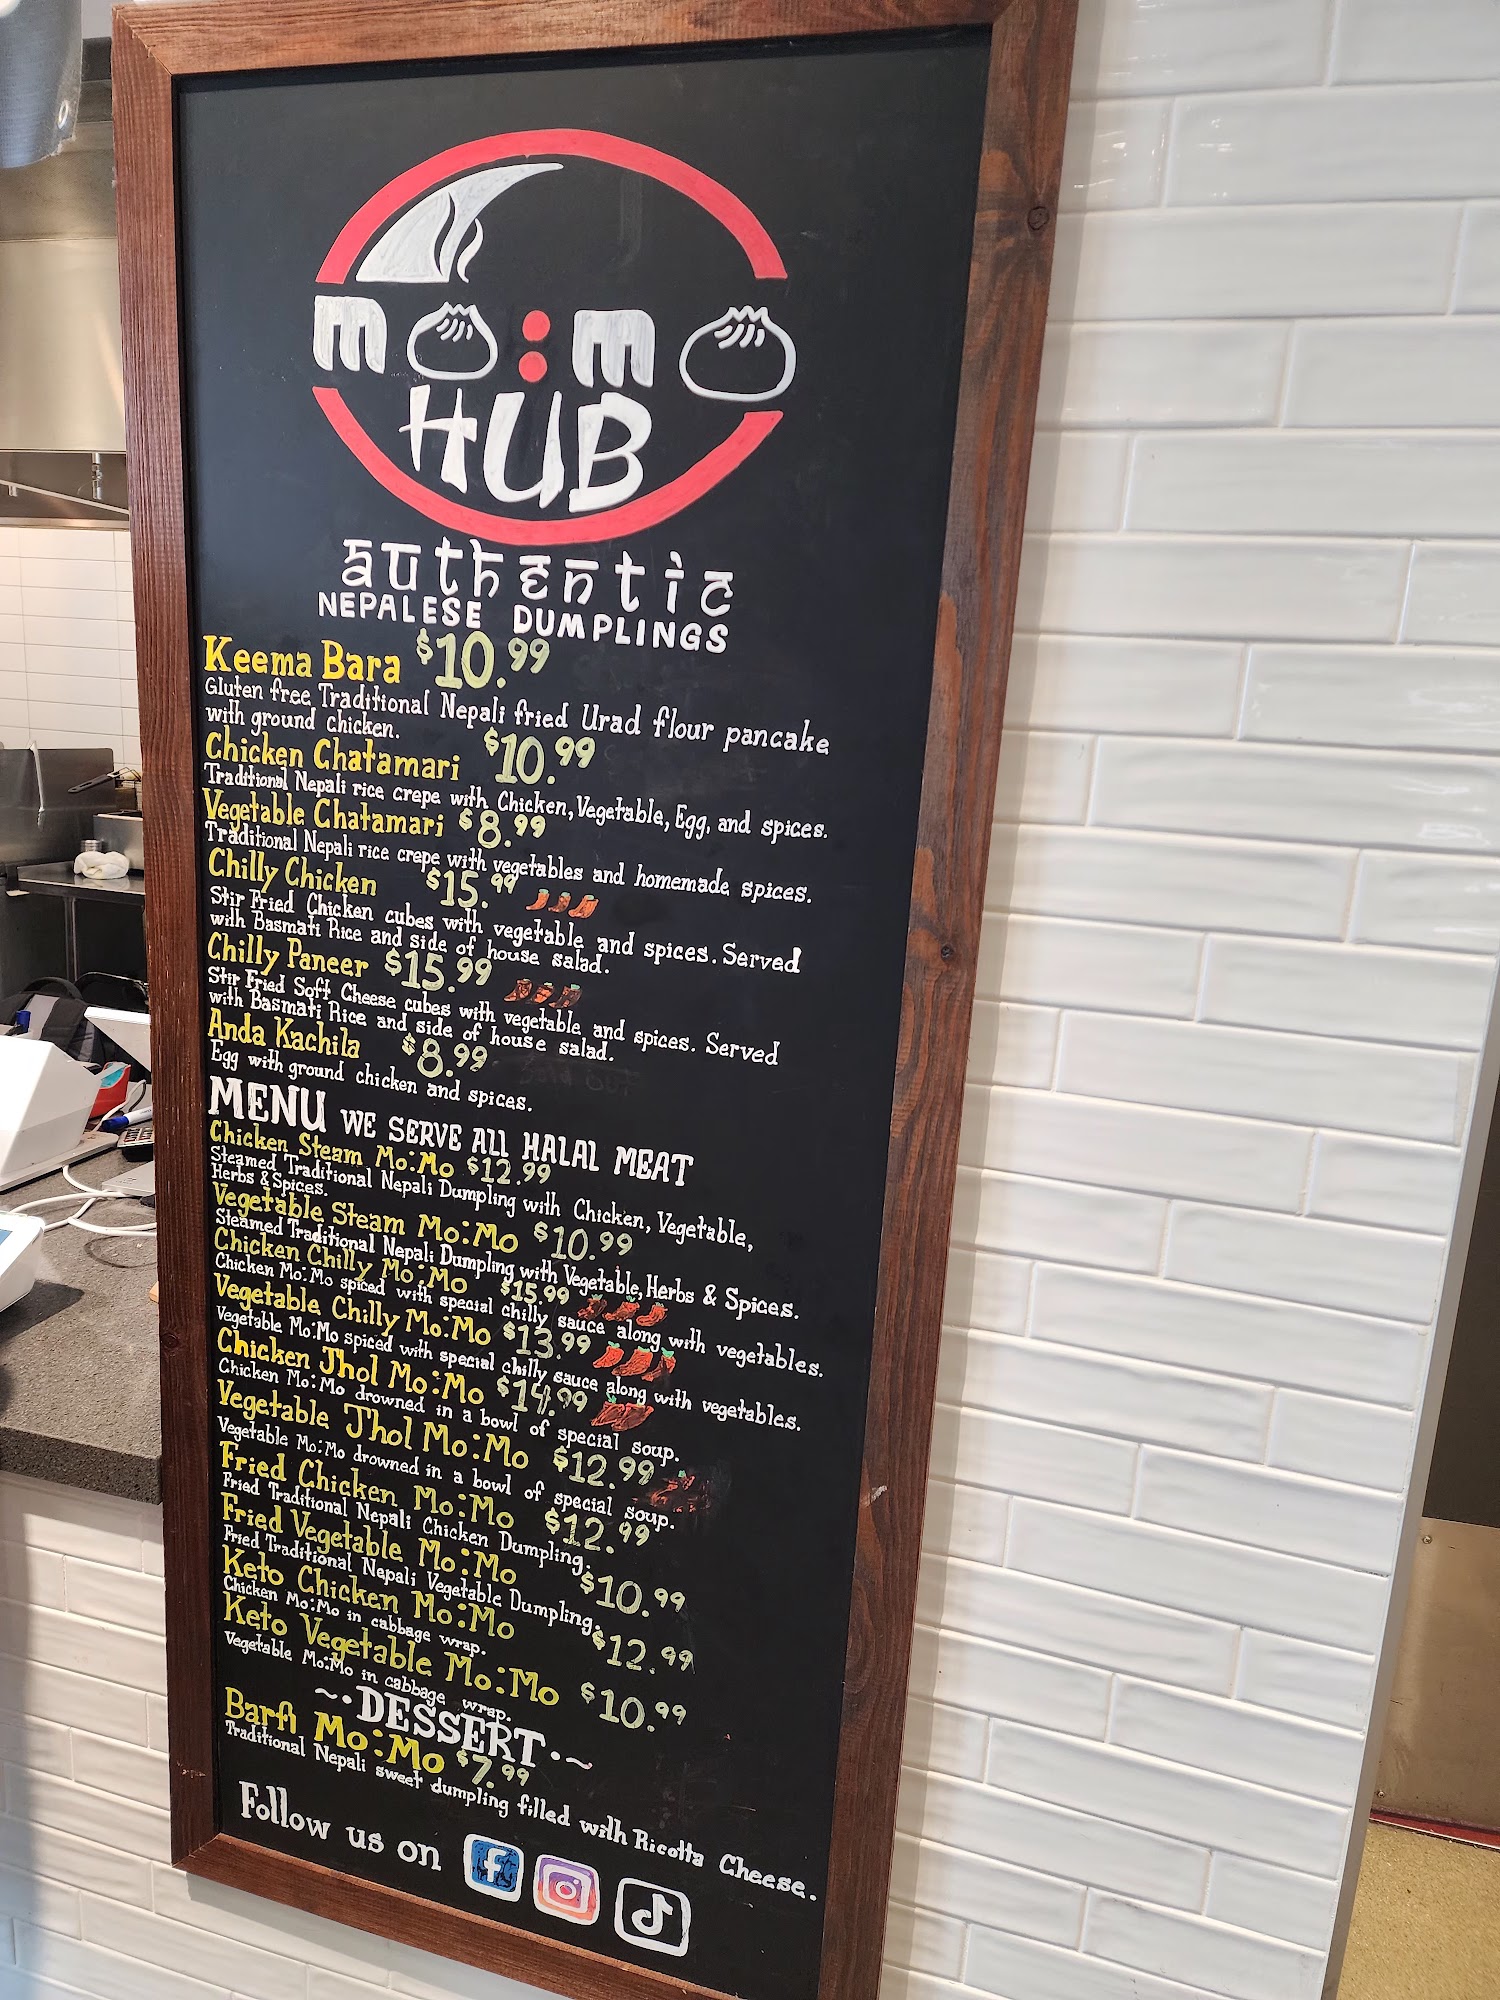 mo:mo
HUB
authentic
NEPALESE DUMPLINGS
Keema Bara $10.99
Gluten free Traditional Nepali fried Urad flour pancake
with ground chicken.
Chicken Chatamari $10.99
Traditional Nepali rice crepe with Chicken, Vegetable, Egg, and spices.
Vegetable Chatamari $8.99
Traditional Nepali rice crepe with vegetables and homemade spices.
Chilly Chicken $15.99
Stir Fried Chicken cubes with vegetable and spices. Served
with Basmati Rice and side of house salad.
Chilly Paneer $15.99
Stir Fried Soft Cheese cubes with vegetable and spices. Served
with Basmati Rice and side of house salad.
Anda Kachila $8.99
Egg with ground chicken and spices.
MENU WE SERVE ALL HALAL MEAT
Chicken Steam Mo:Mo $12.99
Steamed Traditional Nepali Dumpling with Chicken, Vegetable,
Herbs & Spices.
Vegetable Steam Mo:Mo $10.99
Steamed Traditional Nepali Dumpling with Vegetable, Herbs & Spices.
Chicken Chilly Mo:Mo $15.99
Chicken Mo:Mo spiced with special chilly sauce along with vegetables.
Vegetable Chilly Mo:Mo $13.99
Vegetable Mo:Mo spiced with special chilly sauce along with vegetables.
Chicken Jhol Mo:Mo $14.99
Chicken Mo:Mo drowned in a bowl of special soup.
Vegetable Jhol Mo:Mo $12.99
Vegetable Mo:Mo drowned in a bowl of special soup.
Fried Chicken Mo:Mo $12.99
Fried Traditional Nepali Chicken Dumpling.
Fried Vegetable Mo:Mo $10.99
Fried Traditional Nepali Vegetable Dumpling.
Keto Chicken Mo:Mo $12.99
Chicken Mo:Mo in cabbage wrap.
Keto Vegetable Mo:Mo $10.99
Vegetable Mo:Mo in cabbage wrap.
~·DESSERT·~
Barfi Mo:Mo $7.99
Traditional Nepali sweet dumpling filled with Ricotta Cheese.
Follow us on